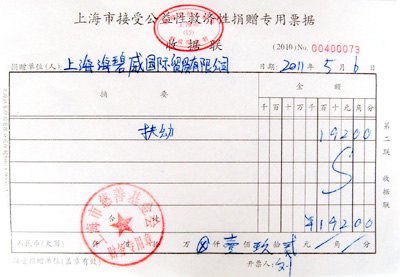 上海市接受公益性救济性捐赠专用票据
收据联
(2010) No: 00400073
捐赠单位(人): 上海海碧威国际贸易有限公司 日期: 2011年5月6日
摘要 金额
千百十万千百十元角分
扶幼 19200
¥19200
第二联 收据联
上海市慈善基金会
人民币(大写) 佰 拾 万 ⊗ 仟 壹 佰 玖 拾 贰 元 角 分
接受捐赠单位(盖章有效) 开票人: 刘